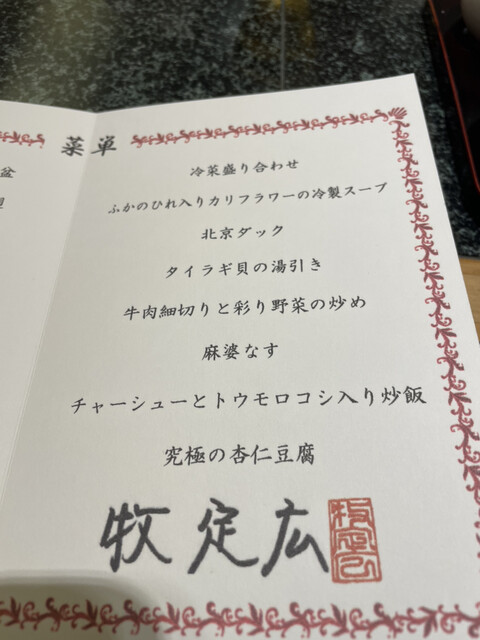 菜単
冷菜盛り合わせ
ふかのひれ入りカリフラワーの冷製スープ
北京ダック
タイラギ貝の湯引き
牛肉細切りと彩り野菜の炒め
麻婆なす
チャーシューとトウモロコシ入り炒飯
究極の杏仁豆腐
牧定広